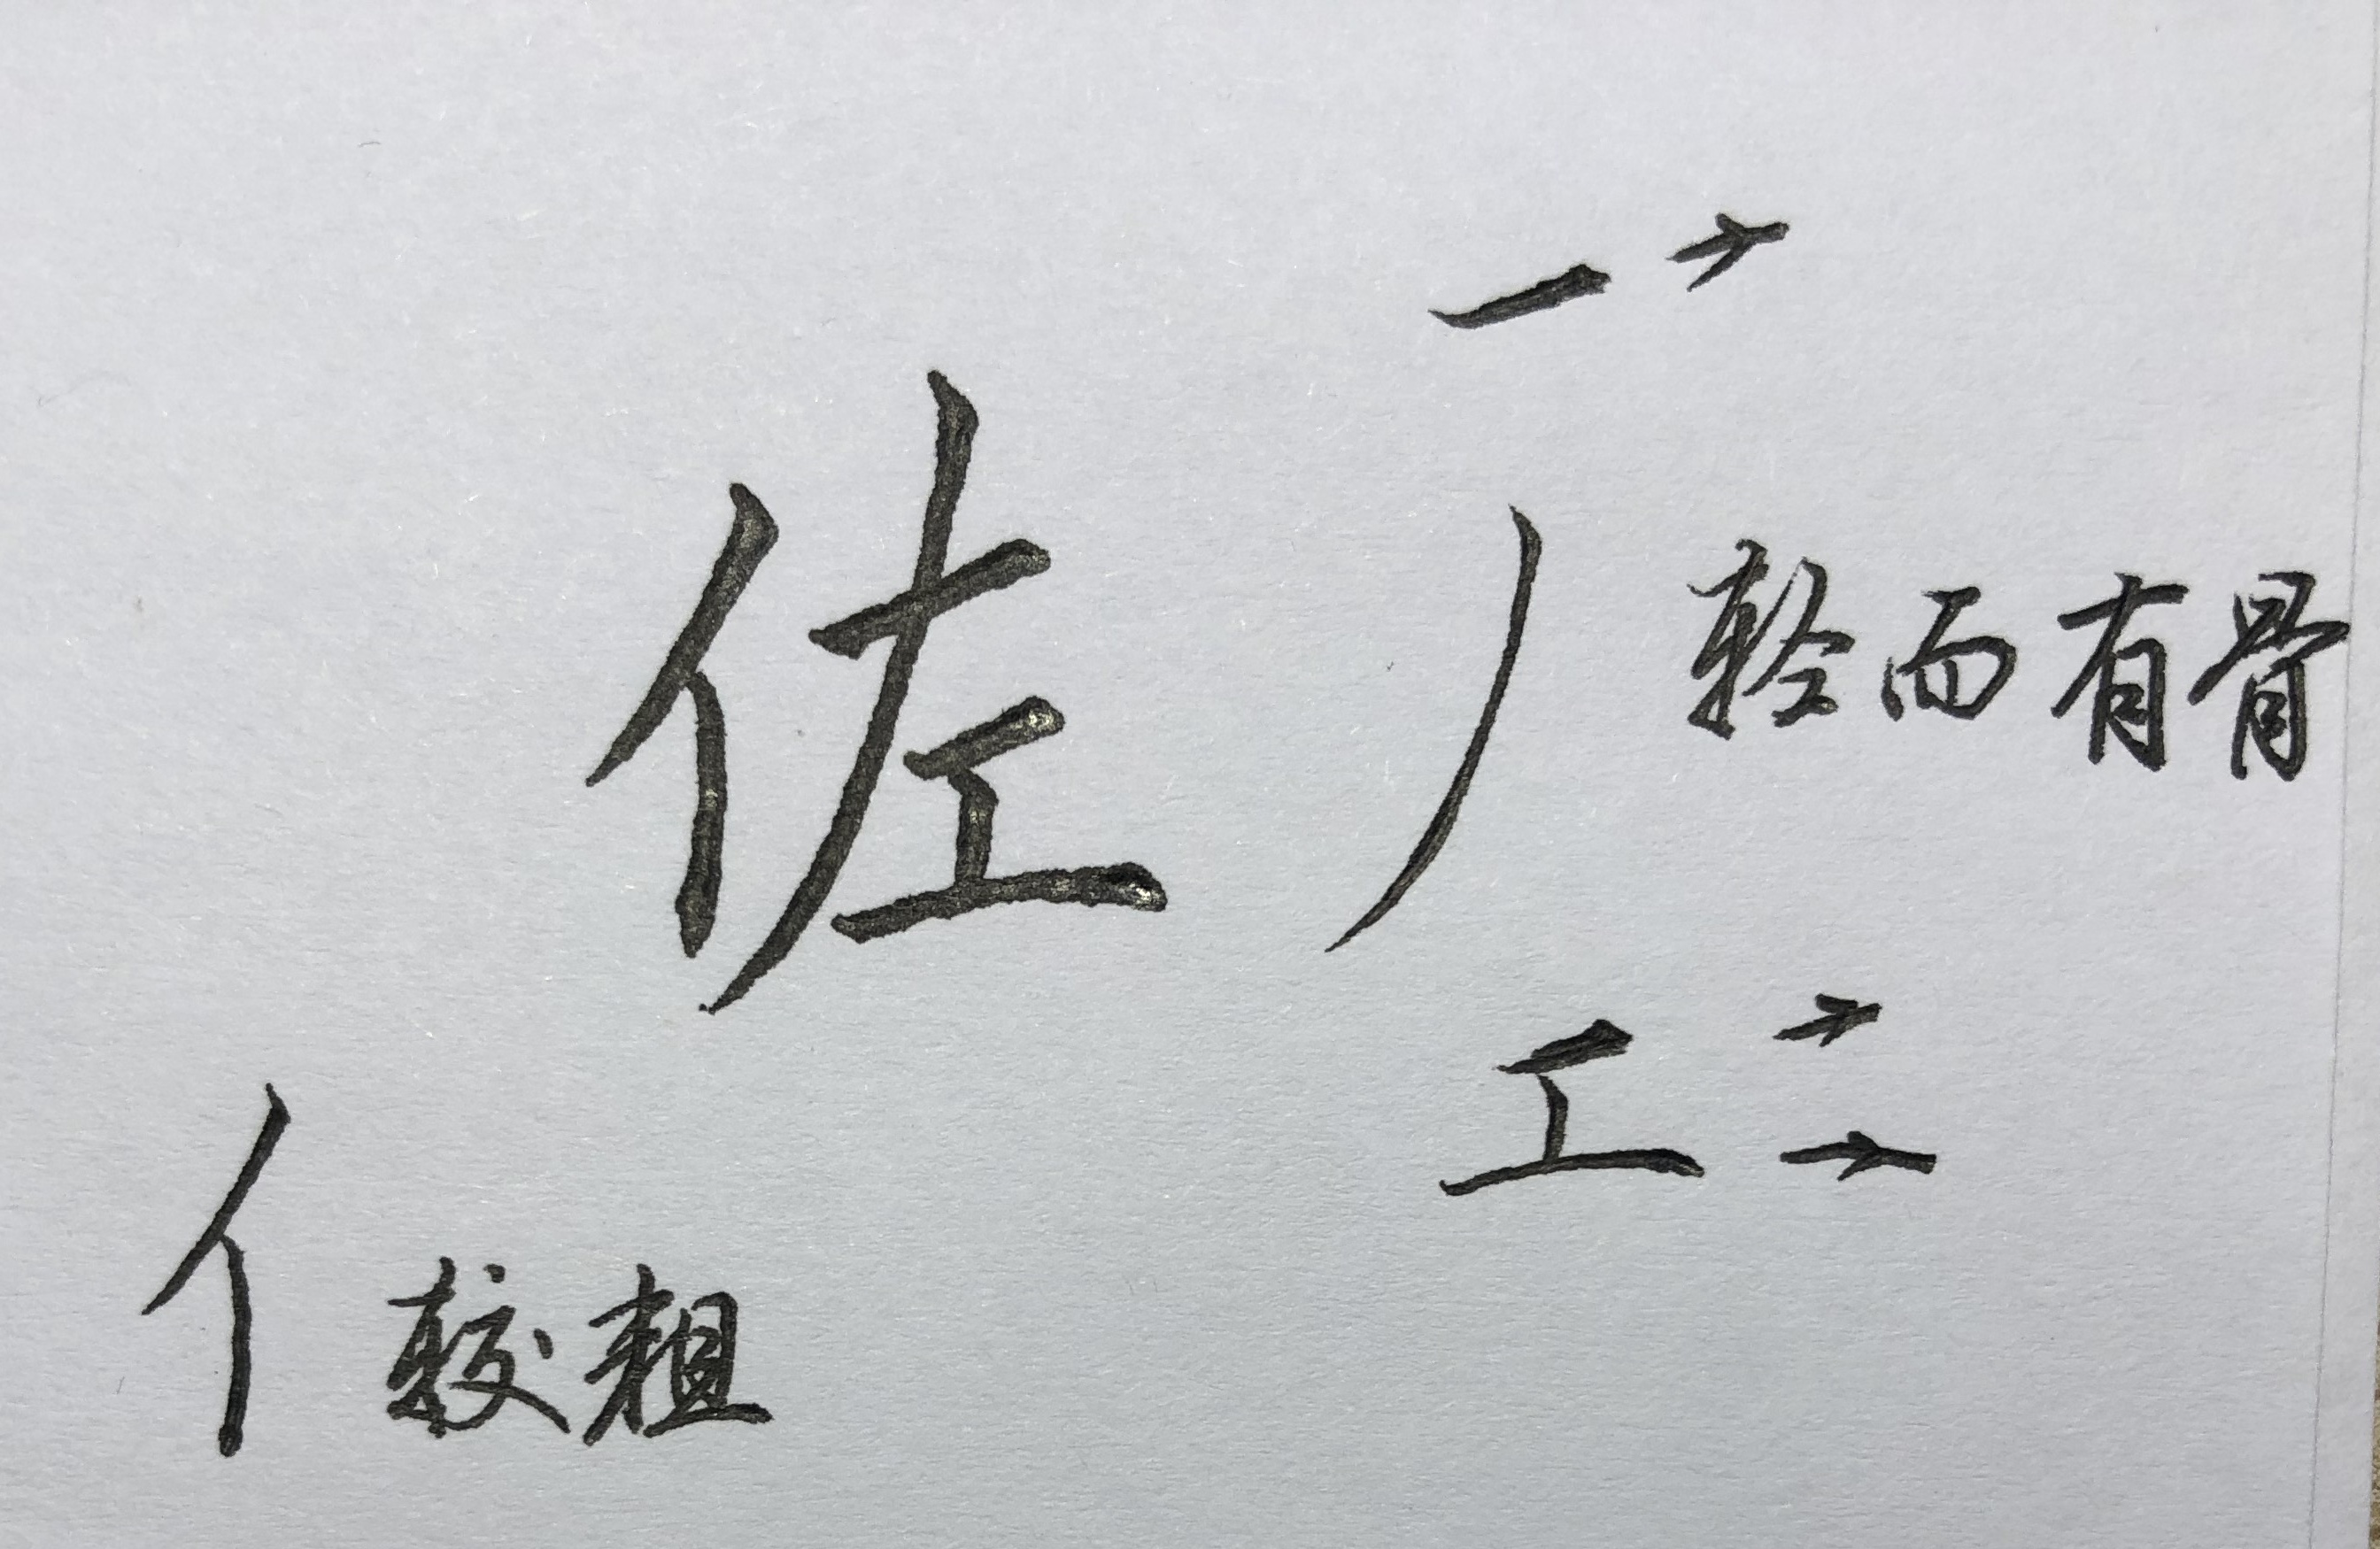 一 →
佐
丿 轻而有骨
工 → →
亻 较粗